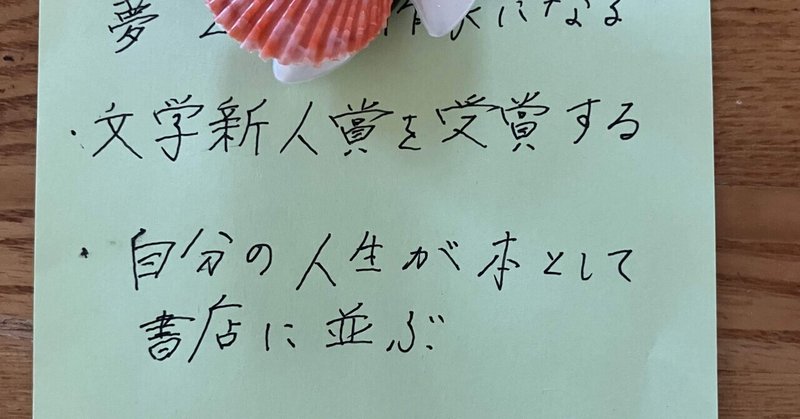 夢 になる
・文学新人賞を受賞する
・自分の人生が本として
書店に並ぶ